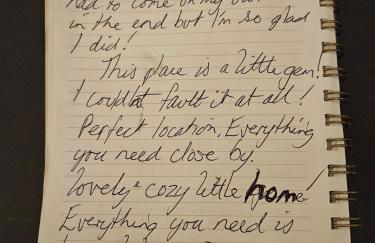 had to come on my own
in the end but I'm so glad
I did!
This place is a little gem!
I could'nt fault it at all!
Perfect location, Everything
you need close by.
lovely & cozy little home!
Everything you need is